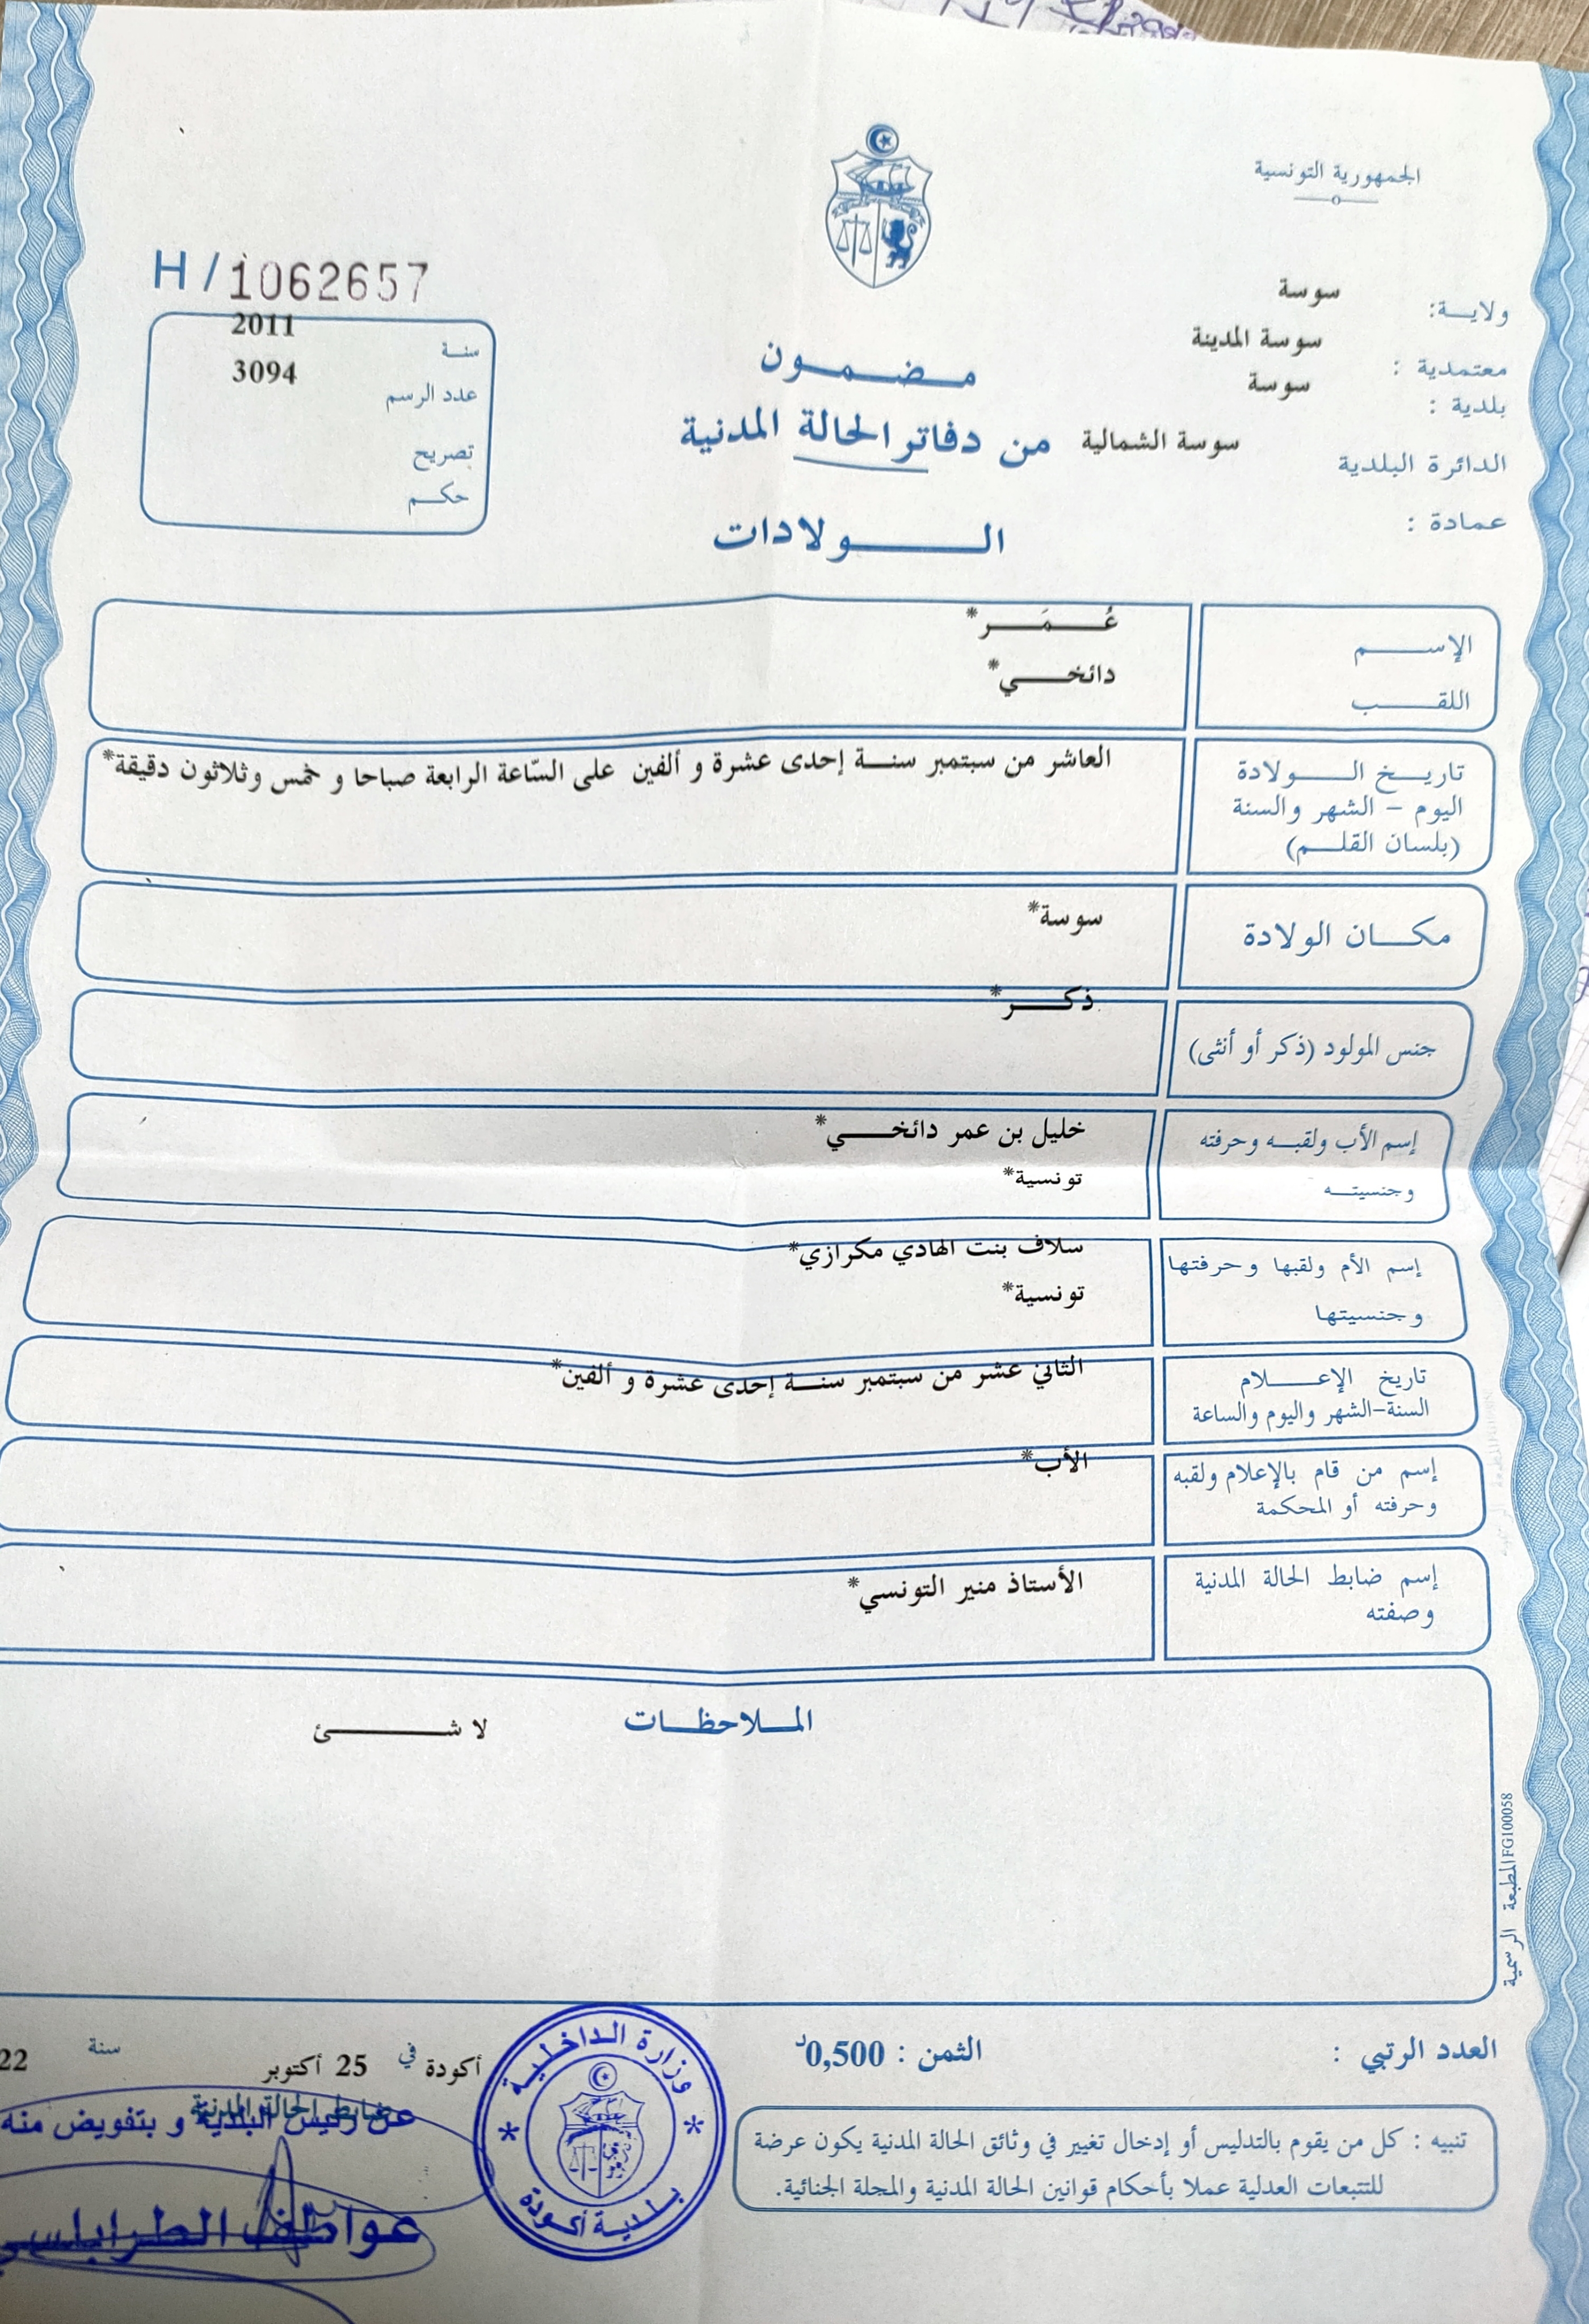 الجمهورية التونسية
ولايـــة: سوسة
معتمدية : سوسة المدينة
بلدية : سوسة
الدائرة البلدية سوسة الشمالية
عمادة :
مـضـمـون
من دفاتر الحالة المدنية
الـولادات
H/1062657
سنـة 2011
عدد الرسم 3094
تصريح
حكـم
الإسـم عُـمَـر*
اللقـب دائخـي*
تاريـخ الـولادة
اليوم – الشهر والسنة
(بلسان القلـم)
العاشر من سبتمبر سنـة إحدى عشرة و ألفين على السّاعة الرابعة صباحا و خمس وثلاثون دقيقة*
مكـان الولادة سوسة*
جنس المولود (ذكر أو أنثى) ذكـر*
إسم الأب ولقبـه وحرفته خليل بن عمر دائخـي*
وجنسيتـه تونسية*
إسم الأم ولقبها وحرفتها سلاف بنت الهادي مكرازي*
وجنسيتها تونسية*
تاريخ الإعـلام
السنة-الشهر واليوم والساعة
الثاني عشر من سبتمبر سنـة إحدى عشرة و ألفين*
إسم من قام بالإعلام ولقبه
وحرفته أو المحكمة
الأب*
إسم ضابط الحالة المدنية
وصفته
الأستاذ منير التونسي*
الملاحظـات لا شـئ
المطبعة الرسمية FG100058
العدد الرتبي :
الثمن : 0,500د
أكودة في 25 أكتوبر سنة 22
ضابط الحالة المدنية
عن رئيس البلدية و بتفويض منه
عواطف الطرابلسي
وزارة الداخلية
بلدية أكودة
تنبيه : كل من يقوم بالتدليس أو إدخال تغيير في وثائق الحالة المدنية يكون عرضة
للتتبعات العدلية عملا بأحكام قوانين الحالة المدنية والمجلة الجنائية.